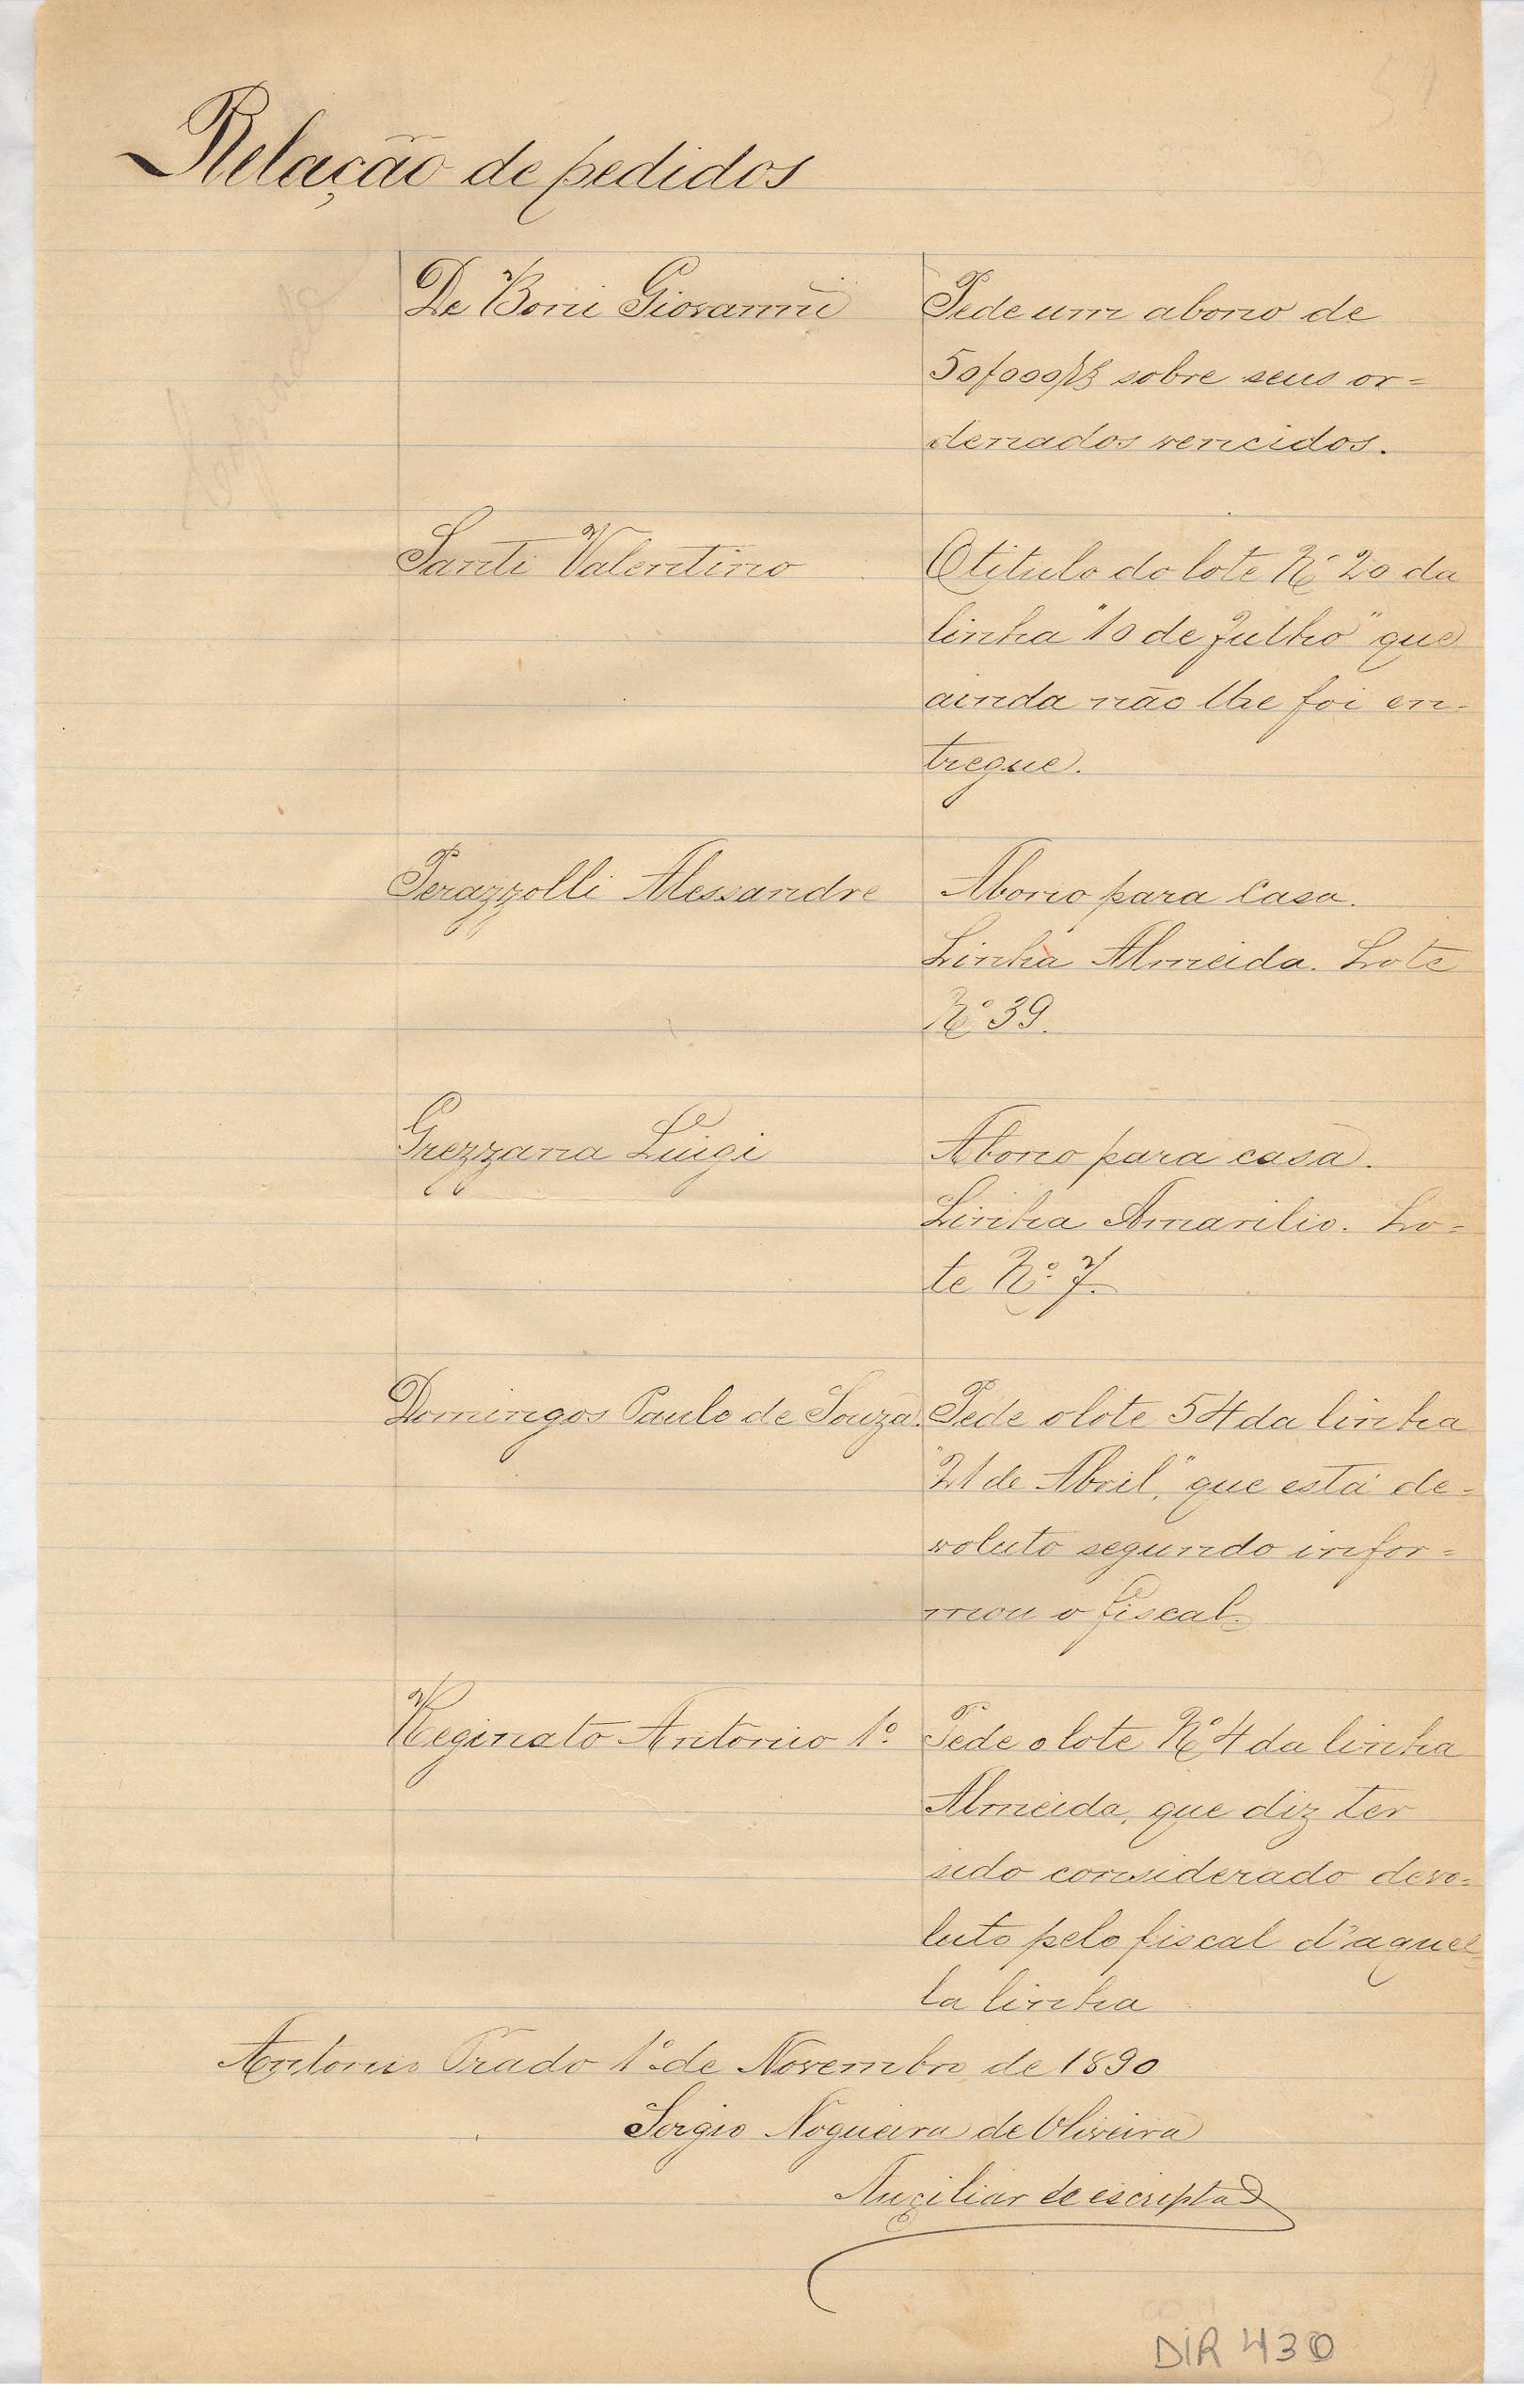 Relação de pedidos
De Boni Giovanni
Pede um abono de
50$000 rs sobre seus or=
denados vencidos.
Santi Valentino
O titulo do lote Nº 20 da
linha "10 de Julho" que
ainda não lhe foi en-
tregue.
Perazzolli Alessandre
Abono para casa.
Linha Almeida. Lote
Nº 39.
Grezzana Luigi
Abono para casa.
Linha Amarilio. Lo=
te Nº 7.
Domingos Paulo de Souza.
Pede o lote 54 da linha
"21 de Abril," que está de=
voluto segundo infor=
mou o fiscal.
Reginato Antonio 1º
Pede o lote Nº 4 da linha
Almeida, que diz ter
sido considerado devo=
luto pelo fiscal d'aquel=
la linha
Antonio Prado 1º de Novembro de 1890
Sergio Nogueira de Oliveira
Auxiliar de escripta
DIR 430